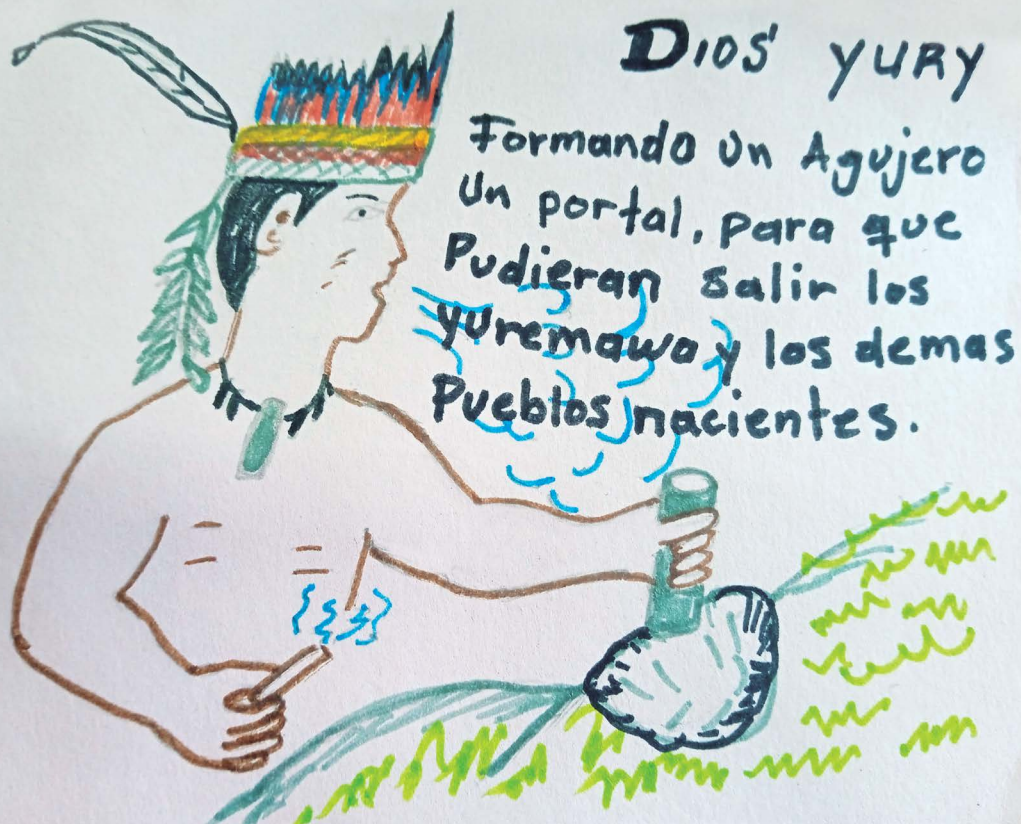 Dios yury
Formando un Agujero
un portal, para que
Pudieran salir los
yuremawa y los demas
Pueblos nacientes.